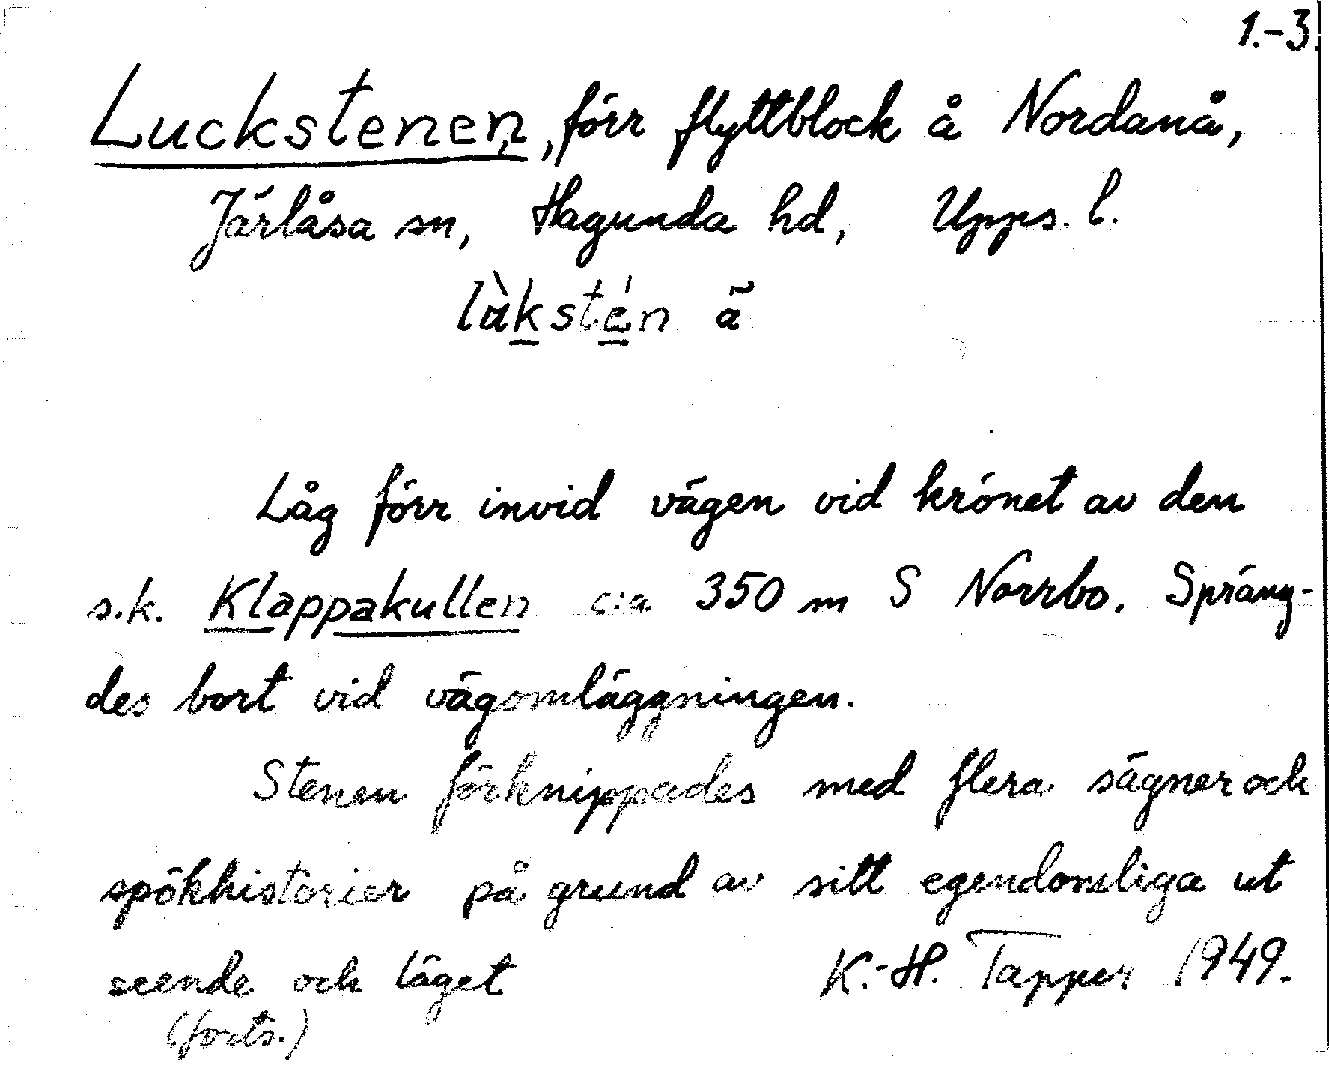 1.-3.
Luckstenen, förr flyttblock å Nordanå,
Järlåsa sn, Hagunda hd, Upps. l.
lùkstén ã
Låg förr invid vägen vid krönet av den
s.k. Klappakullen c:a 350 m S Norrbo. Spräng-
des bort vid vägomläggningen.
Stenen förknippades med flera sägner och
spökhistorier på grund av sitt egendomliga ut
seende och läget K.-H. Tapper 1949.
(forts.)